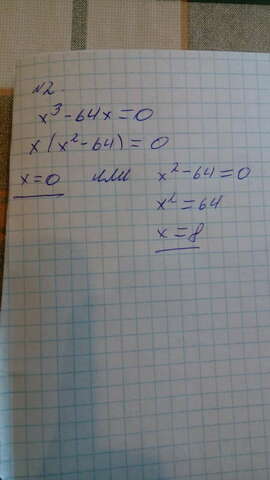 №2.
x³-64x=0
x(x²-64)=0
x=0 или x²-64=0
x²=64
x=8